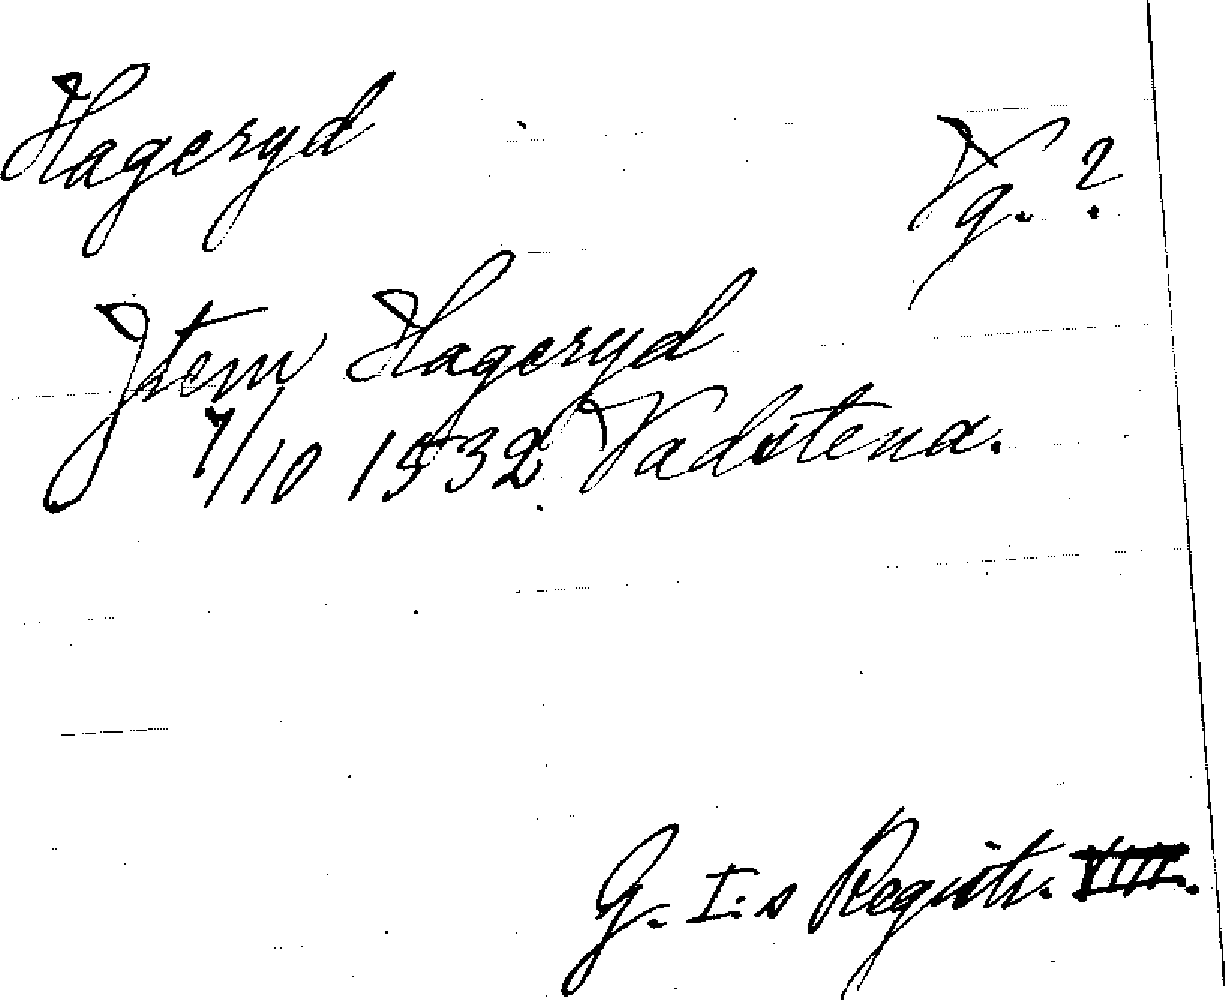 Hageryd
Vg. ?
Item Hageryd
7/10 1532. Vadstena.
G. I:s Registr. VIII.